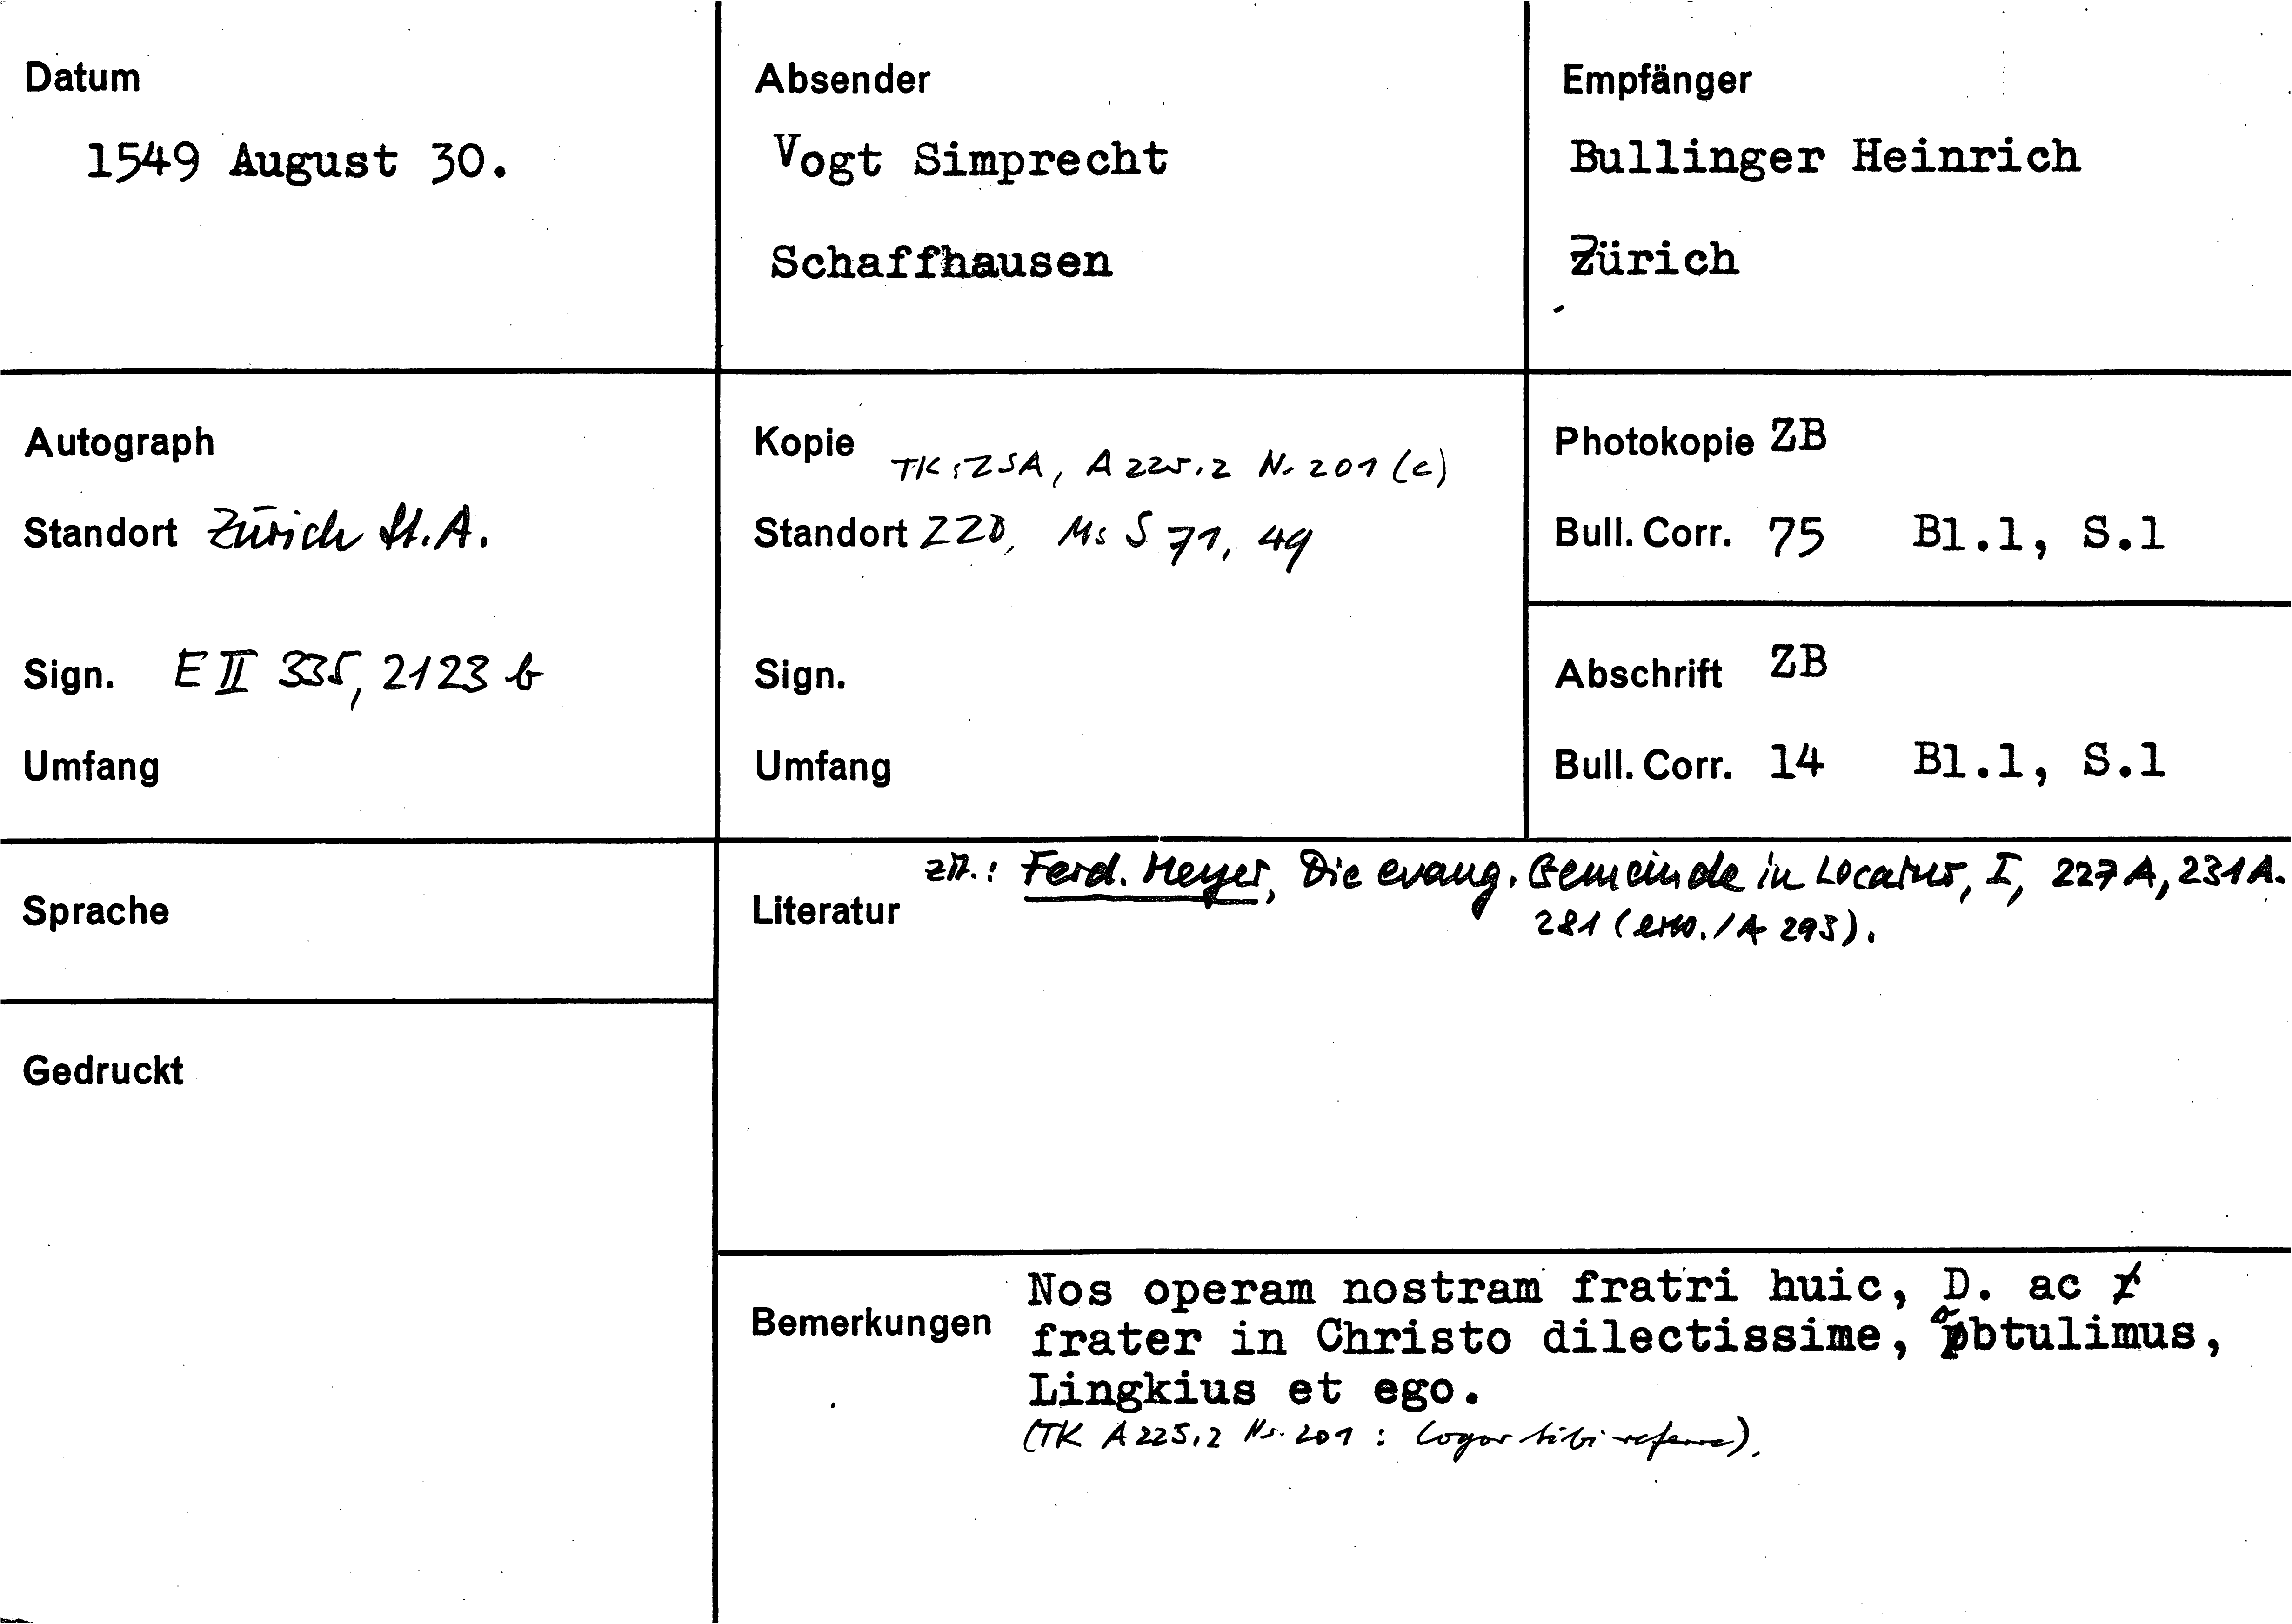 Datum
1549 August 30.
Absender
Vogt Simprecht
Schaffhausen
Empfänger
Bullinger Heinrich
Zürich
Autograph
Standort Zürich St.A.
Sign. E II 335, 2123 b
Umfang
Kopie TK: ZSA, A 225.2 Nr. 201 (c)
Standort ZZB, Ms S 71, 49
Sign.
Umfang
Photokopie ZB
Bull. Corr. 75 Bl.1, S.1
Abschrift ZB
Bull. Corr. 14 Bl.1, S.1
Sprache
Gedruckt
zit.: Ferd. Meyer, Die evang. Gemeinde in Locarno, I, 227 A, 231 A.
Literatur
281 (erw. / A 293).
Bemerkungen
Nos operam nostram fratri huic, D. ac
frater in Christo dilectissime, obtulimus,
Lingkius et ego.
(TK A 225.2 Nr. 201 : Cogor tibi referre).